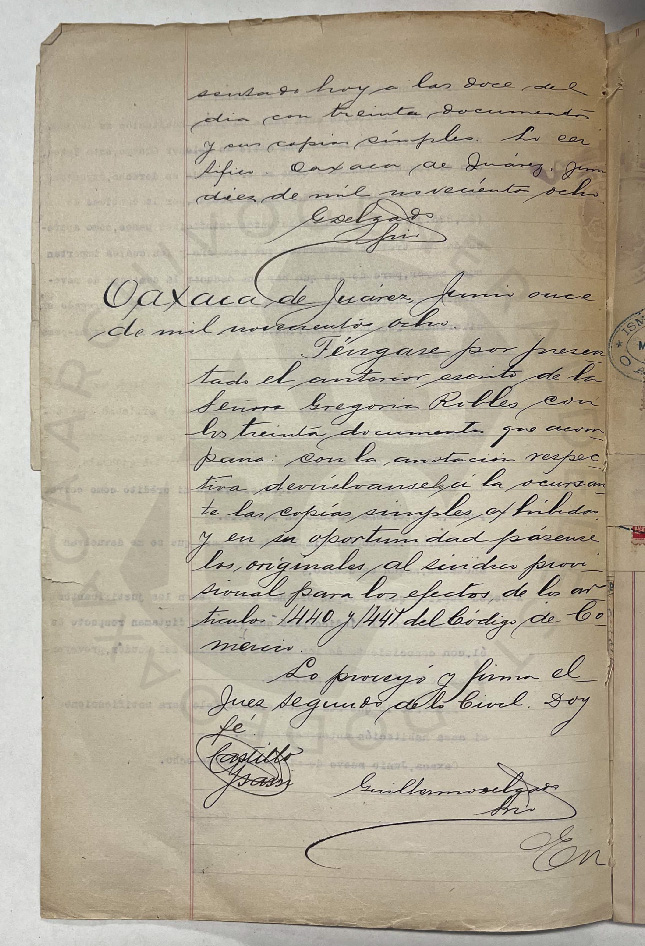 sentado hoy a las doce del
dia con treinta documentos
y sus copias simples. Lo cer
tifico. Oaxaca de Juárez, Junio
diez de mil novecientos ocho.
GDelgado
Srio
Oaxaca de Juárez, Junio once
de mil novecientos ocho.
Téngase por presen
tado el anterior escrito de la
Señora Gregoria Robles, con
los treinta documentos que acom
paña: con la anotación respec
tiva devuélvansele á la ocursan
te las copias simples exhibidas
y en su oportunidad pásense
los originales al síndico provi
sional para los efectos de los ar
tículos 1440 y 1441 del Código de Co
mercio.
Lo proveyó y firma el
Juez segundo de lo Civil. Doy
fé.
Castillo
Guillermo Delgado
Srio
En